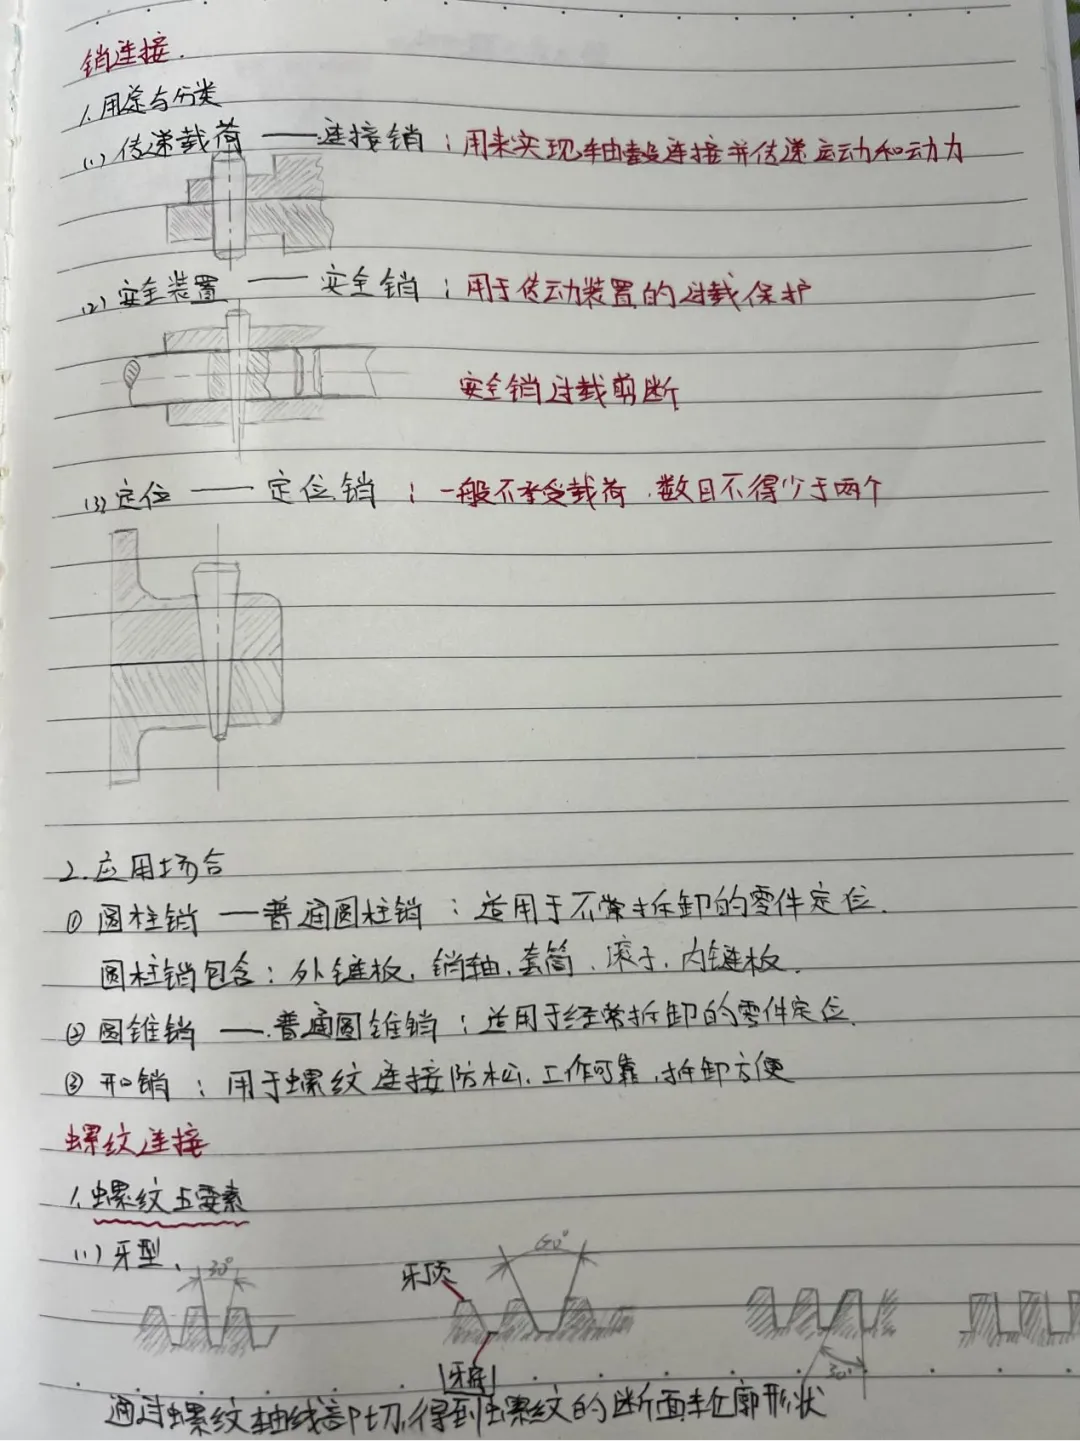 销连接.
1.用途与分类
(1) 传递载荷 —— 连接销：用来实现轴毂连接并传递运动和动力
(2) 安全装置 —— 安全销：用于传动装置的过载保护
安全销过载剪断
(3) 定位 —— 定位销：一般不承受载荷.数目不得少于两个
2.应用场合
① 圆柱销 — 普通圆柱销：适用于不常拆卸的零件定位.
圆柱销包含：外链板、销轴、套筒、滚子、内链板.
② 圆锥销 —. 普通圆锥销：适用于经常拆卸的零件定位.
③ 开口销：用于螺纹连接防松.工作可靠,拆卸方便
螺纹连接
1.螺纹五要素
(1) 牙型、
30° 牙顶 60°
牙底 30°
通过螺纹轴线剖切,得到螺纹的断面轮廓形状